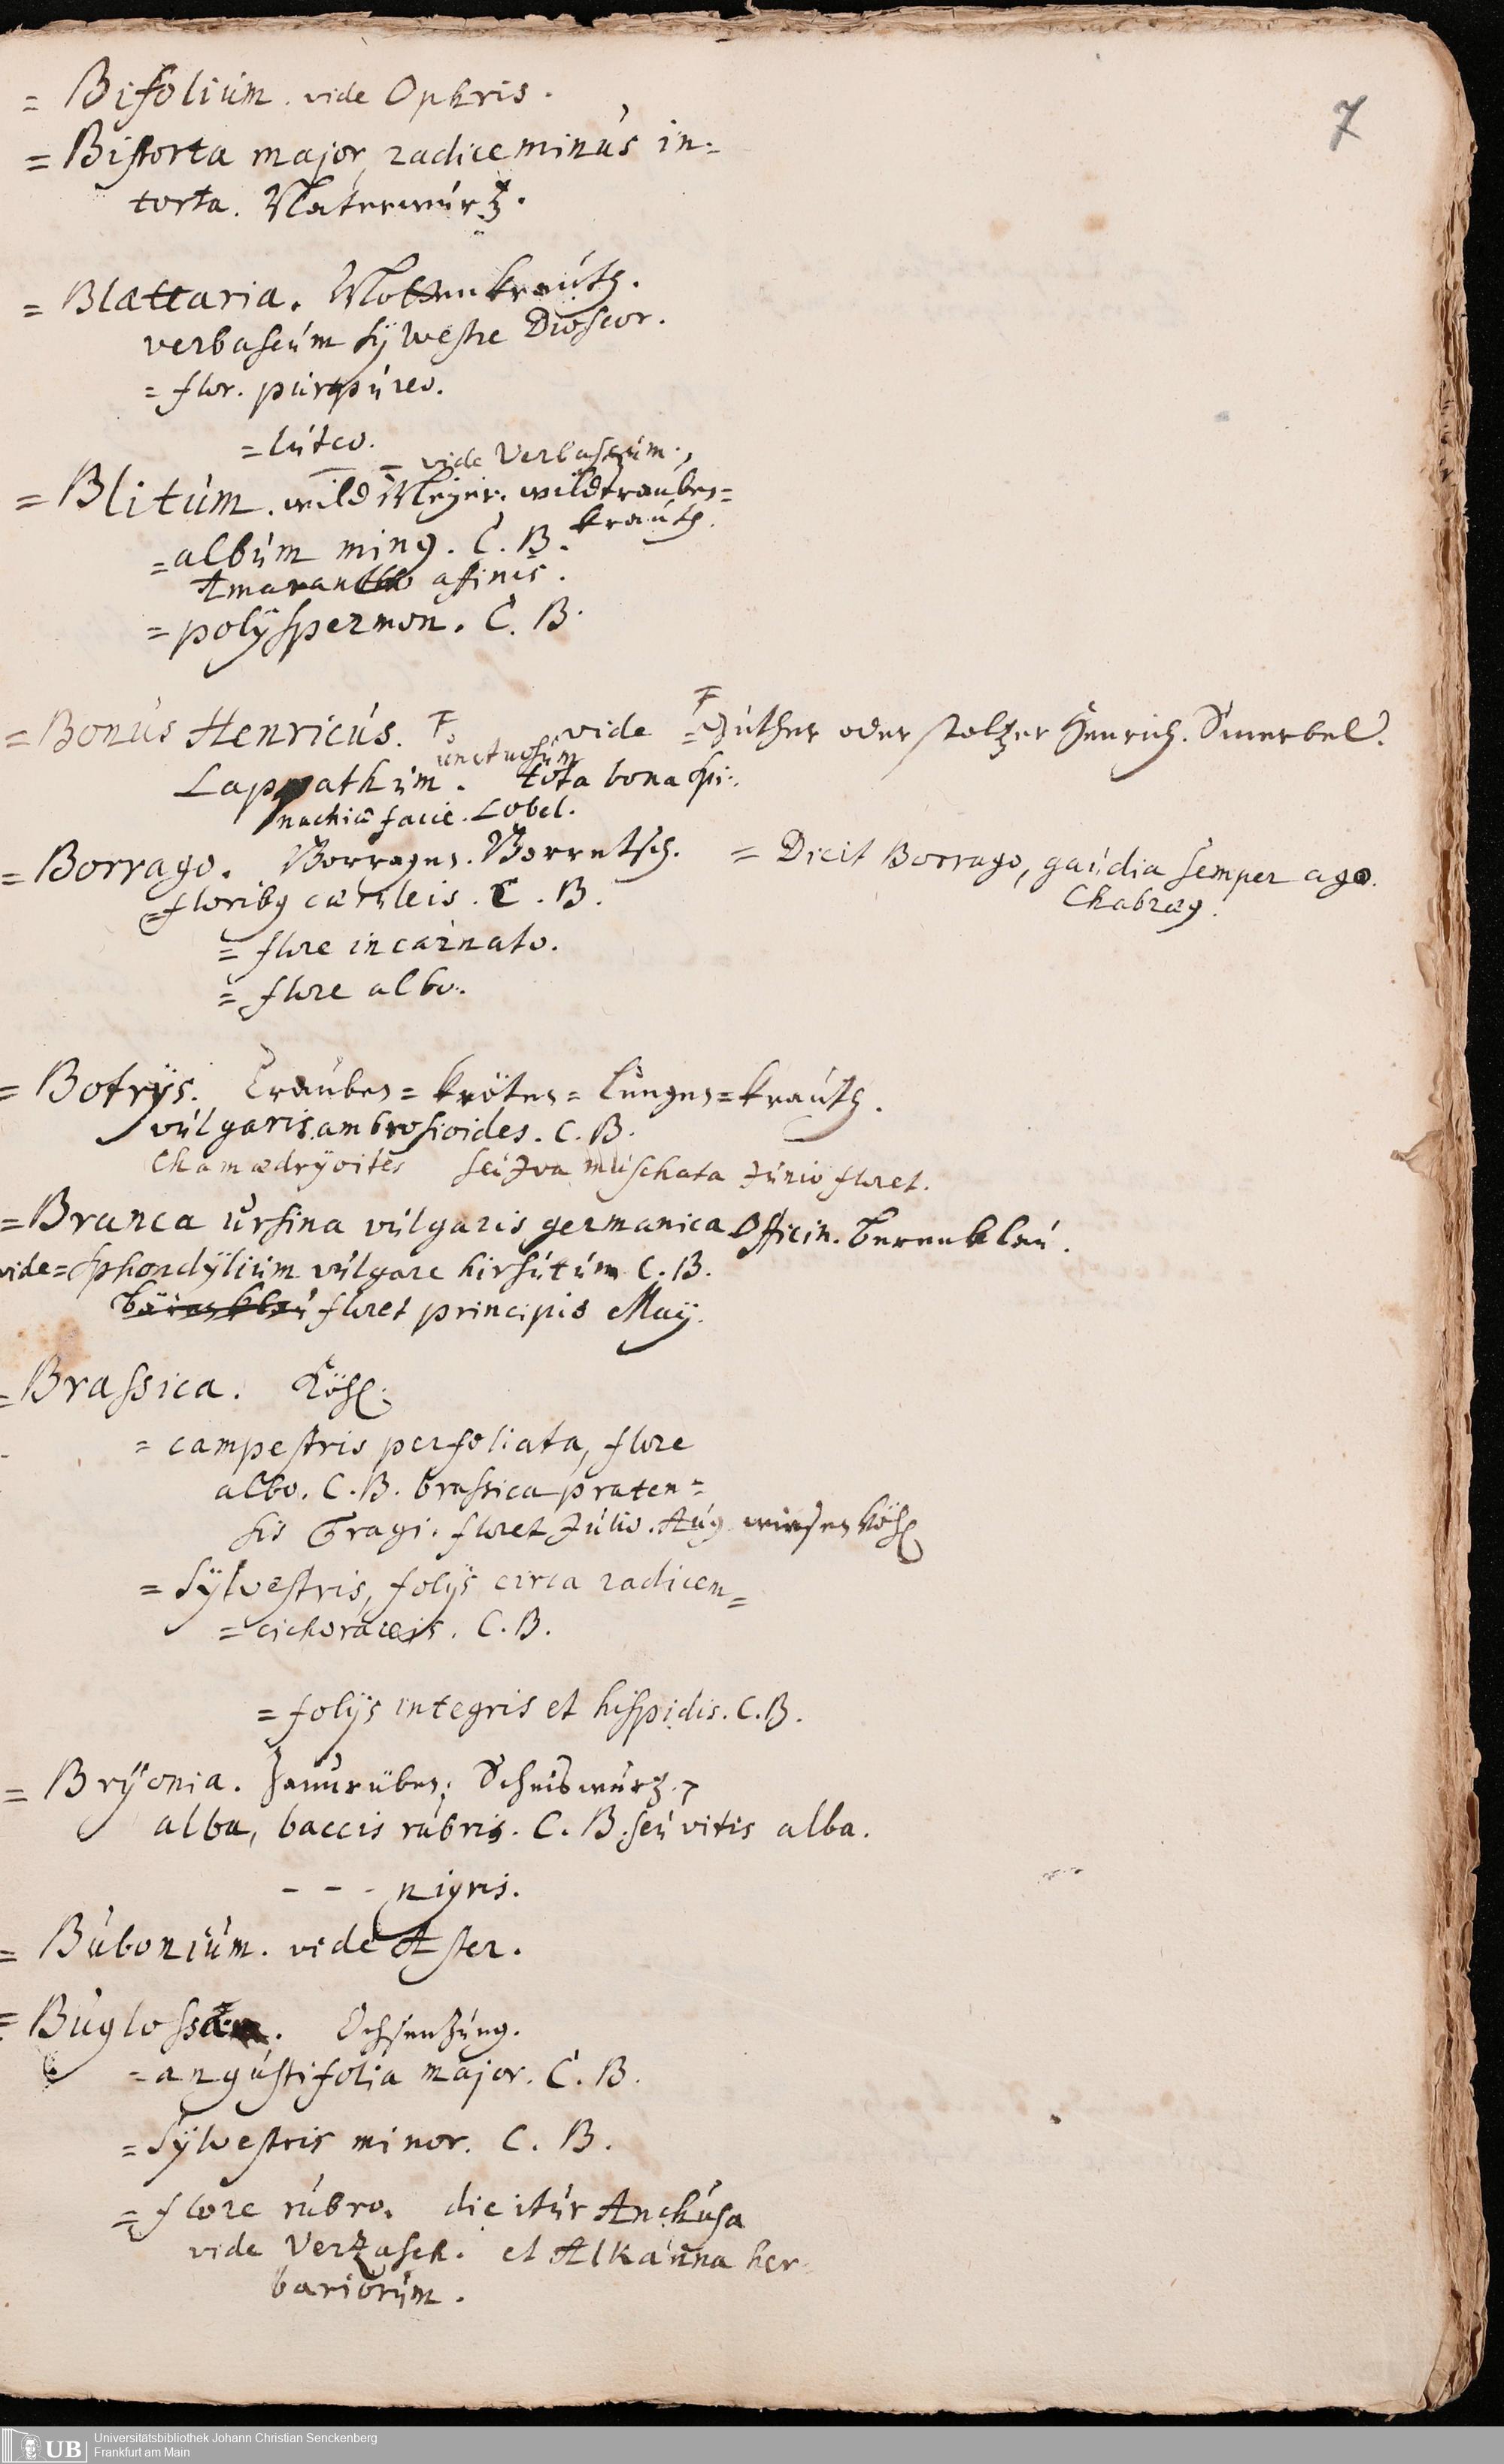 7
= Bifolium. vide Ophris.
= Bistorta major, radice minus in=
torta. Naterwurtz.
= Blattaria. Mottenkrauth.
verbascum sÿlvestre Dioscor.
= flor. purpureo.
= luteo.
= vide Verbascum.
= Blitum. wild Meyer. wildtrauben=
krauth.
= album minus. C. B.
Amarantho affinis.
= polÿspermon. C. B.
= Bonus Henricus. vide = Guther oder stoltzer Henrich. Smerbel.
unctuosum
Lappathum. tota bona spi=
nachiæ facie. Lobel.
= Borrago. Borragen. Borretsch. = Dicit Borrago, gaudia semper ago.
Chabræus.
= floribus cæruleis. C. B.
= flore incarnato.
= flore albo.
= Botrÿs. Trauben= kröten= Lungen=krauth.
vulgaris ambrosioides. C. B.
Chamædrÿoites seu Iva muschata Junio floret.
= Branca ursina vulgaris, germanica Officin. Berenklau.
vide = Sphondÿlium vulgare hirsutum C. B.
floret principis Maÿ.
= Brassica. Köhl.
= campestris perfoliata, flore
albo. C. B. brassica praten=
sis Tragi. floret Julio. Aug. wiesen Köhl
= Sÿlvestris, folÿs circa radicem=
= cichoraceis. C. B.
= folÿs integris et hispidis. C. B.
= Brÿonia. Zaunrüben; Scheiswurtz.
alba, baccis rubris. C. B. seu vitis alba.
- - - nigris.
= Bubonium. vide Aster.
= Buglossa. Ochsenzung.
= angustifolia major. C. B.
= Sÿlvestris minor. C. B.
= flore rubro. dicitur Anchusa
vide Verzasch. et Alkanna her
bariorum.
UB
Universitätsbibliothek Johann Christian Senckenberg
Frankfurt am Main